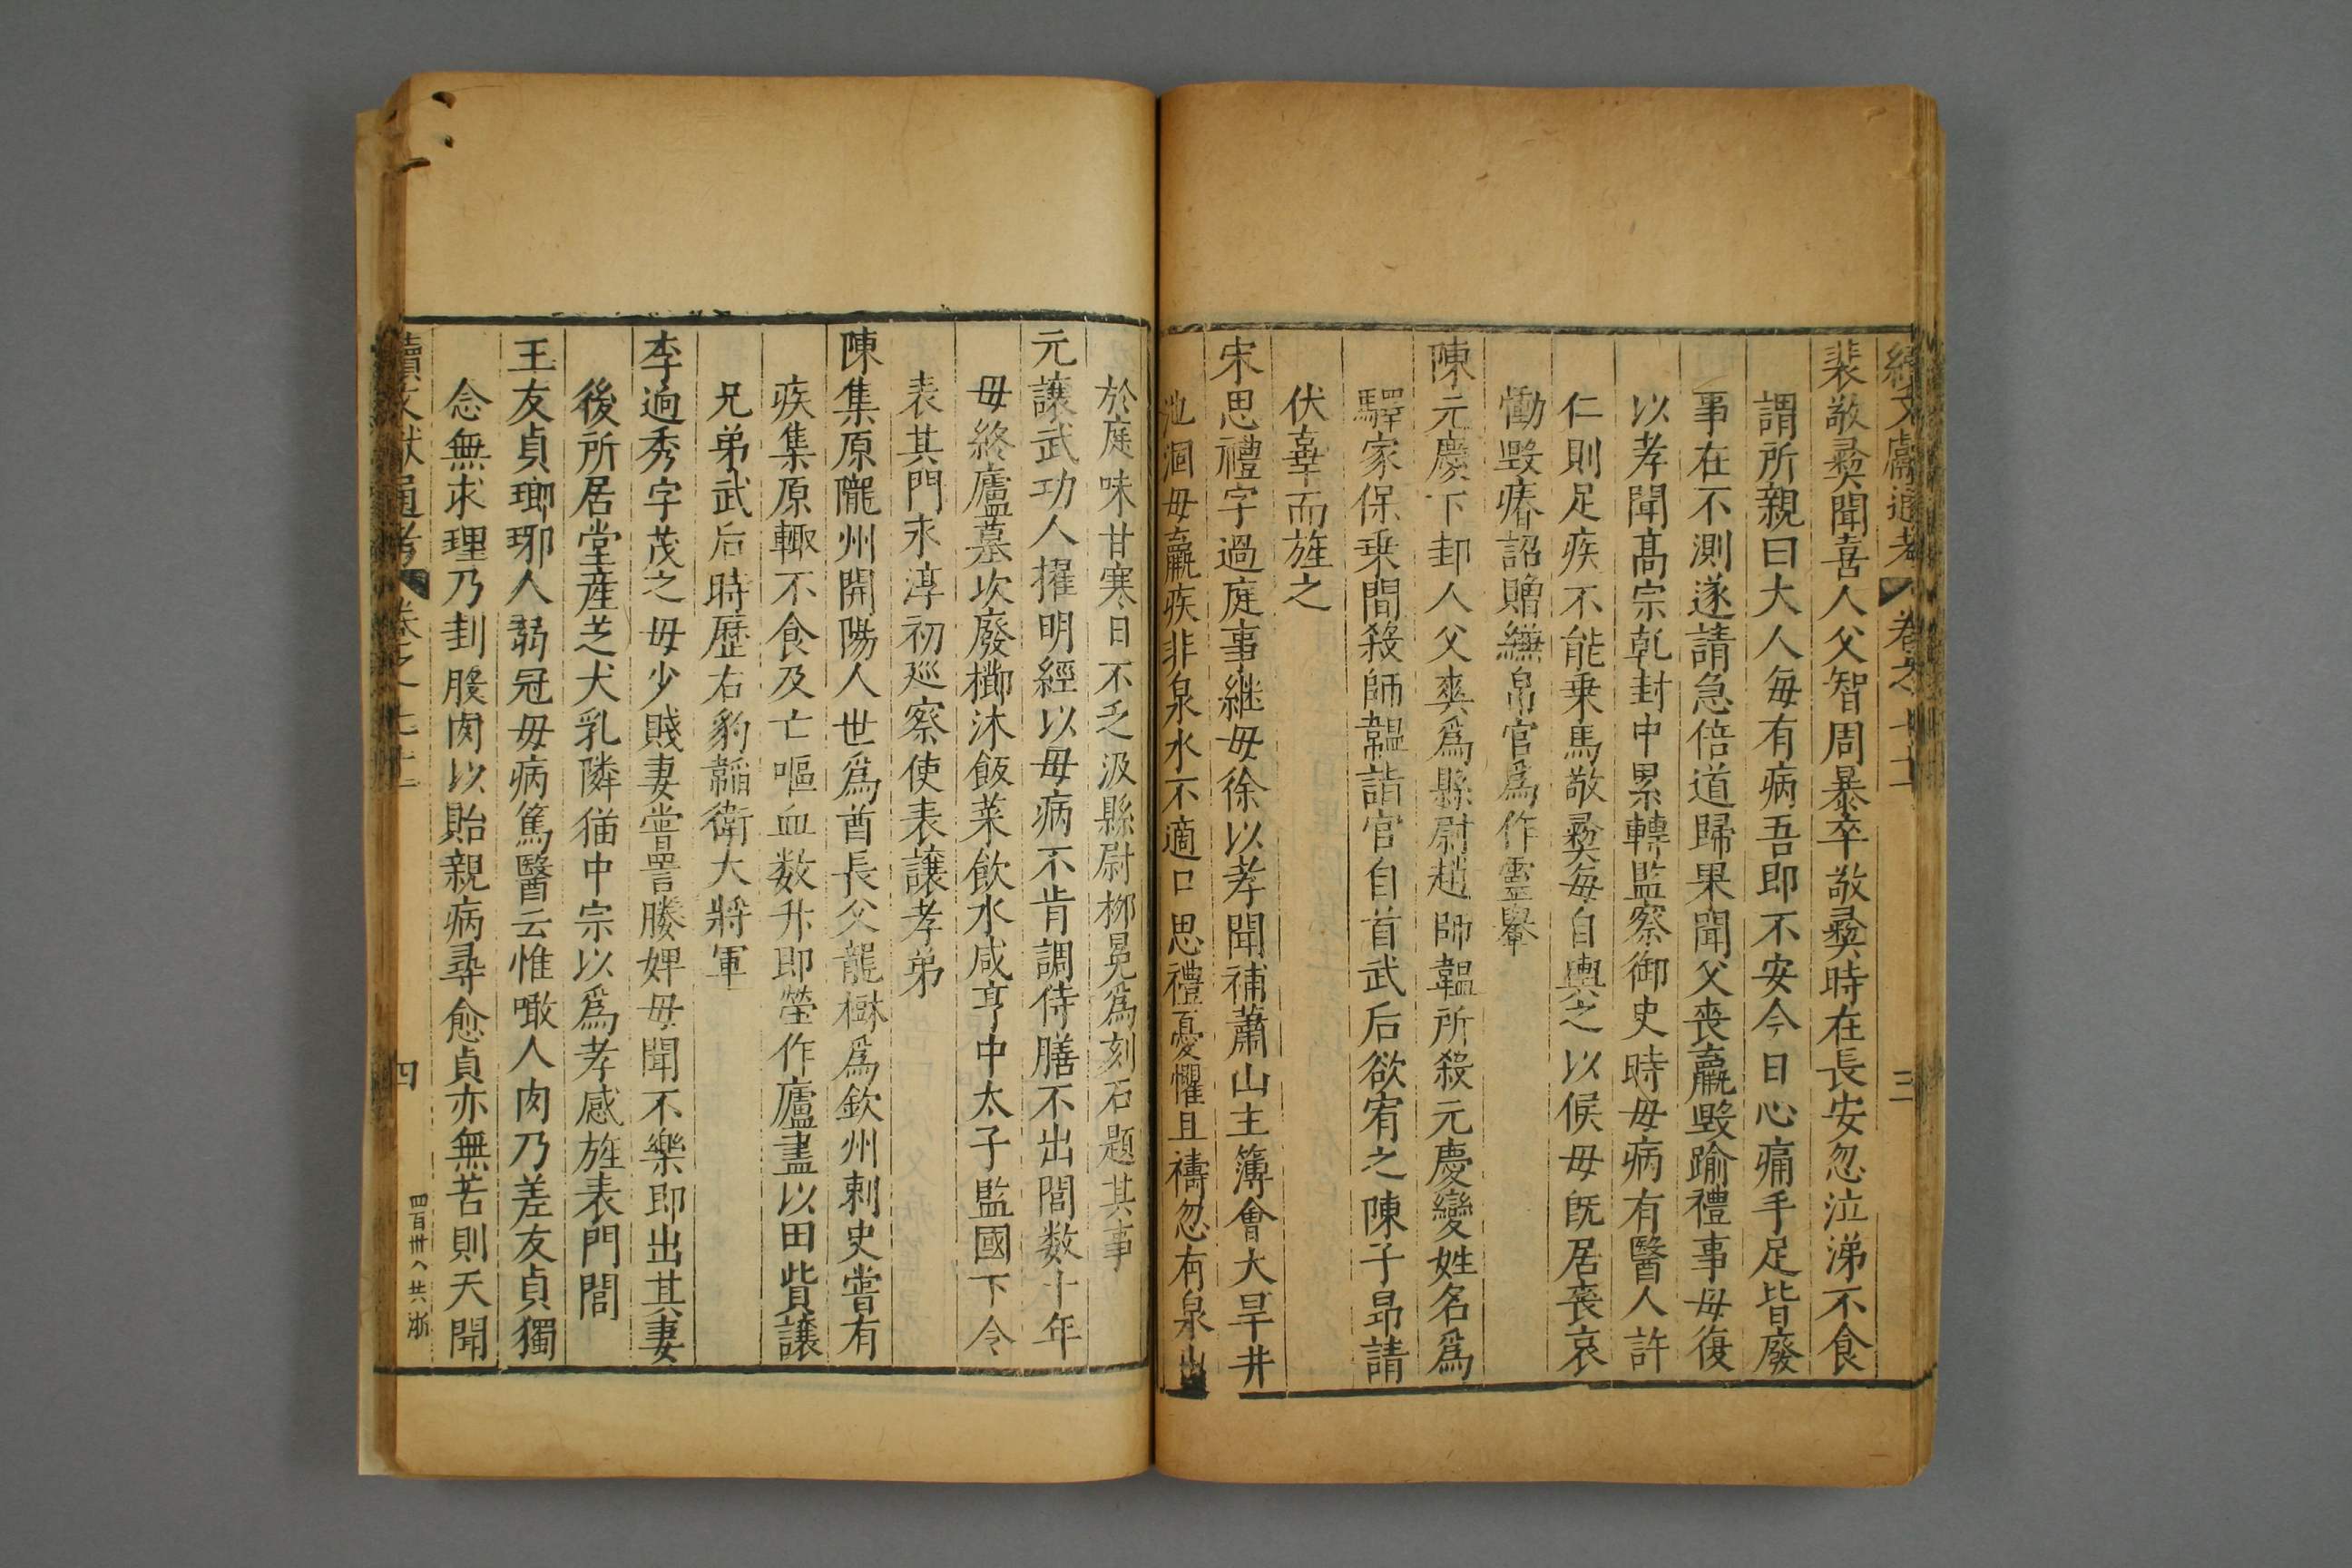 續文獻通考 卷之七十二 三
裴敬彛聞喜人父智周暴卒敬彛時在長安忽泣涕不食
謂所親曰大人每有病吾即不安今日心痛手足皆廢
事在不測遂請急倍道歸果聞父喪羸毀踰禮事母復
以孝聞髙宗乾封中累轉監察御史時母病有醫人許
仁則足疾不能乗馬敬彛每自輿之以候母旣居喪哀
慟毀瘠詔贈縑帛官爲作靈轝
陳元慶下邽人父爽爲縣尉趙師韞所殺元慶變姓名爲
驛家保乗間殺師韞詣官自首武后欲宥之陳子昻請
伏辜而旌之
宋思禮字過庭事継母徐以孝聞補蕭山主簿會大旱井
池涸母羸疾非泉水不適口思禮憂懼且禱忽有泉出
於庭味甘寒日不乏汲縣尉柳晃爲刻石題其事
元讓武功人擢明經以母病不肯調侍膳不出閭数十年
母終廬墓次廢櫛沐飯菜飲水咸亨中太子監國下令
表其門永淳初廵察使表讓孝弟
陳集原隴州開陽人世爲酋長父龍樹爲欽州刺史嘗有
疾集原輙不食及亡嘔血数升即塋作廬盡以田貲讓
兄弟武后時歴右豹韜衛大將軍
李逈秀字茂之母少賤妻嘗詈媵婢母聞不樂即出其妻
後所居堂産芝犬乳隣猫中宗以爲孝感旌表門閭
王友貞瑯琊人弱冠母病篤醫云惟噉人肉乃差友貞獨
念無求理乃割股肉以貽親病尋愈貞亦無苦則天聞
續文獻通考 卷之七十二 四
四百卅八 共 浙